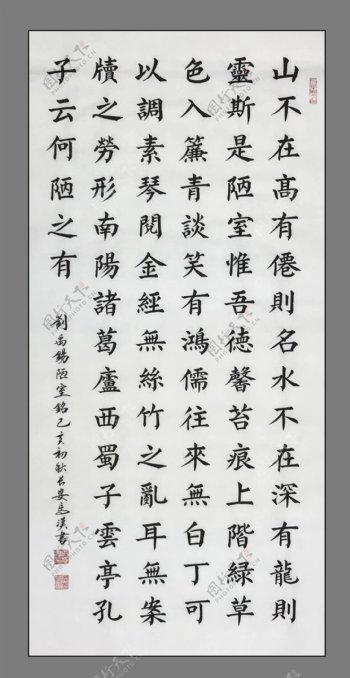 山不在髙有僊則名水不在深有龍則
靈斯是陋室惟吾德馨苔痕上階緑草
色入簾青談笑有鴻儒往來無白丁可
以調素琴閱金經無絲竹之亂耳無案
牘之勞形南陽諸葛廬西蜀子雲亭孔
子云何陋之有
劉禹錫陋室銘己亥初秋書